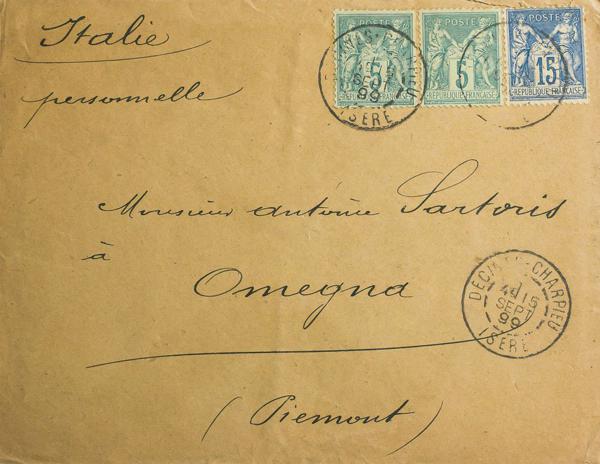 Italie
personnelle
POSTE
5
REPUBLIQUE FRANÇAISE
POSTE
5
REPUBLIQUE FRANÇAISE
POSTE
15
REPUBLIQUE FRANÇAISE
SEPT
99
ISÈRE
Monsieur Antoine Sartoris
à
Omegna
(Piemont)
CHARPIEU
15
SEPT
99
ISÈRE